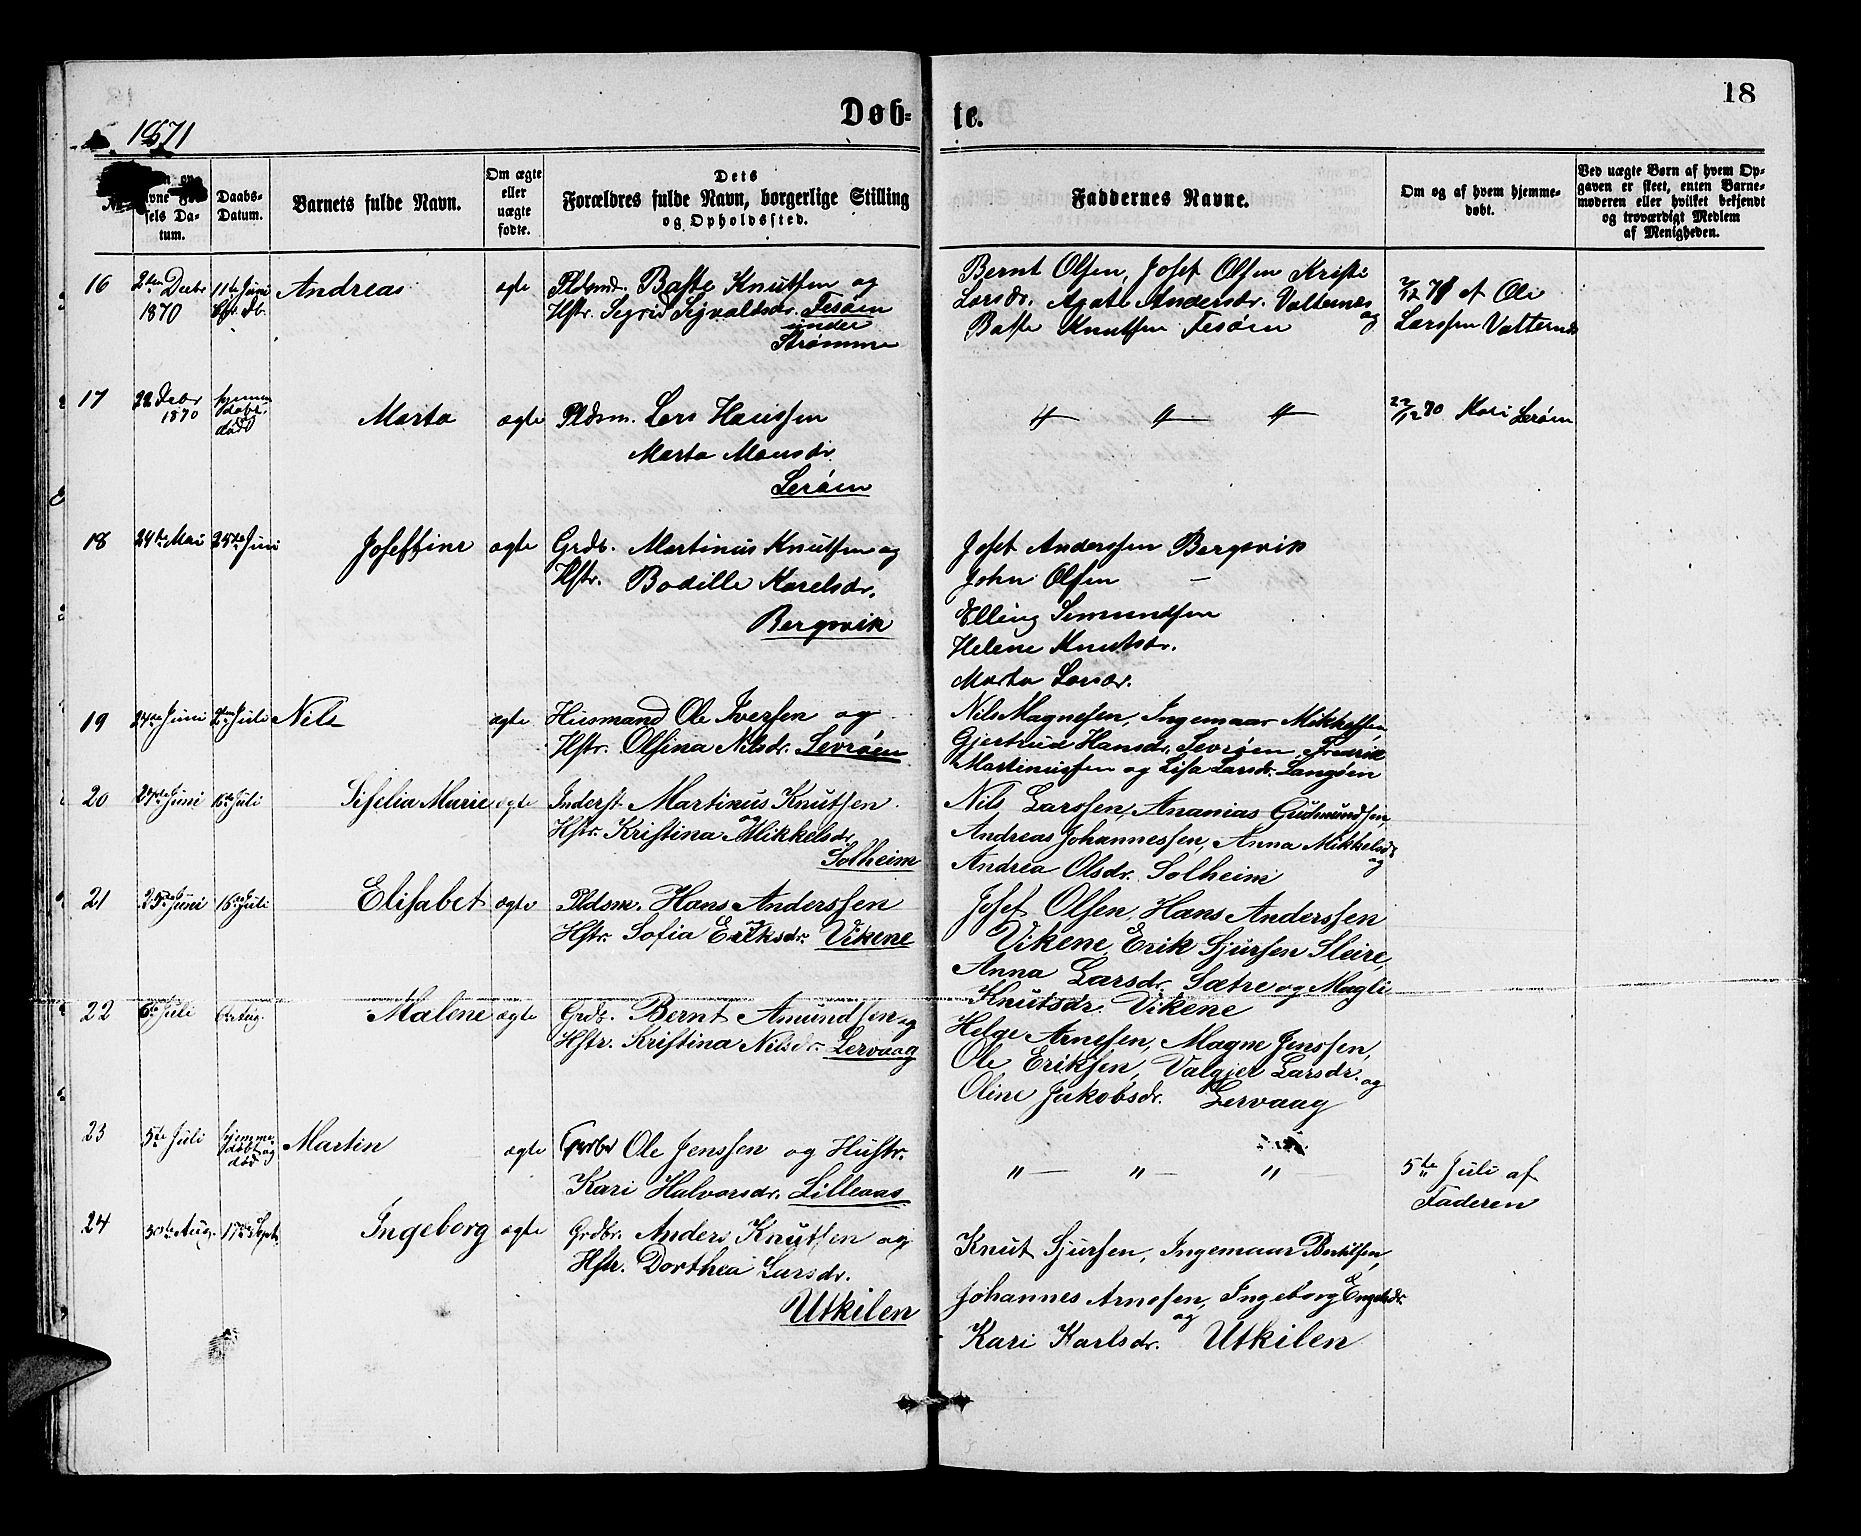 18
Døb-
te.
1871
Daabs-
Datum.
sels Da-
tum.
Barnets fulde Navn.
Om ægte
eller
uægte
fødte.
Dets
Forældres fulde Navn, borgerlige Stilling
og Opholdssted.
Faddernes Navne.
Om og af hvem hjemme-
døbt.
Ved uægte Børn af hvem Op-
gaven er skeet, enten Barne-
moderen eller hvilket bekjendt
og troværdigt Medlem
af Menigheden.
16 2den Decbr 1870 11te Juni Andreas ægte
Pldsmd. Baste Knutsen og
Hstr. Segrid Sigvaldsdr. Fesøen
under
Strømme
Bernt Olsen, Josef Olsen Kristi
Larsdr. Agate Andersdr. Valternes og
Baste Knutsen Fesøen
af Ole
Larssen Vatternes
17 22 Debr 1870 hjemme døbt død Marta ægte
Pldsm. Lars Hanssen
Marta Monsdr.
Lerøen
" " "
22/12 70 Kari Lerøen
18 24de Mai 25te Juni Joseffine ægte
Grdb. Martinus Knutsen og
Hstr. Bodille Karelsdr.
Bergsvik
Josef Anderssen Bergsvik
John Olsen —
Elling Semundsen
Helene Knutsdr.
Marta Larsdr.
19 24de Juni 2den Juli Nils ægte
Husmand Ole Iversen og
Hstr. Olsina Nilsdr. Sevrøen
Nils Magnesen, Ingemaar Mikkelsen,
Gjertrud Hansdr. Sevrøen, Fredrik
Martinussen og Lisa Larsdr. Langøen
20 27de Juni 16de Juli Sifelia Marie ægte
Inderst Martinus Knutsen
og
Hstr. Kristina Mikkelsdr.
Solheim
Nils Larssen, Ananias Gudmundsen,
Andreas Johannessen, Anna Mikkelsdr og
Andrea Olsdr. Solheim
21 25de Juni 16de Juli Elisabet ægte
Pldsm. Hans Anderssen
og
Hstr. Sofia Eriksdr. Vikene
Josef Olsen, Hans Anderssen
Vikene, Erik Sjursen Sleire,
Anna Larsdr. Sætre og Magli
Knutsdr. Vikene
22 6te Juli 6te Aug. Malene ægte
Grdb. Bernt Amundsen og
Hstr. Kristina Nilsdr. Lervaag
Helge Arnesen, Magne Jenssen,
Ole Eriksen, Valgjer Larsdr. og
Oline Jakobsdr. Lervaag
23 5te Juli hjemme døbt og død Martin ægte
Grdbr Ole Jenssen og Hustr.
Kari Halvorsdr. Lilleaas
" — " — "
5te Juli af
Faderen
24 30te Aug. 17de Sept. Ingeborg ægte
Grdbr. Anders Knutsen og
Hstr. Dorthea Larsdr.
Utkilen
Knut Sjursen, Ingemaar Bertilsen,
Johannes Arnesen, Ingeborg Engelsdr.
og
Kari Karlsdr. Utkilen